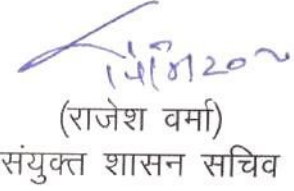 (राजेश वर्मा)
संयुक्त शासन सचिव